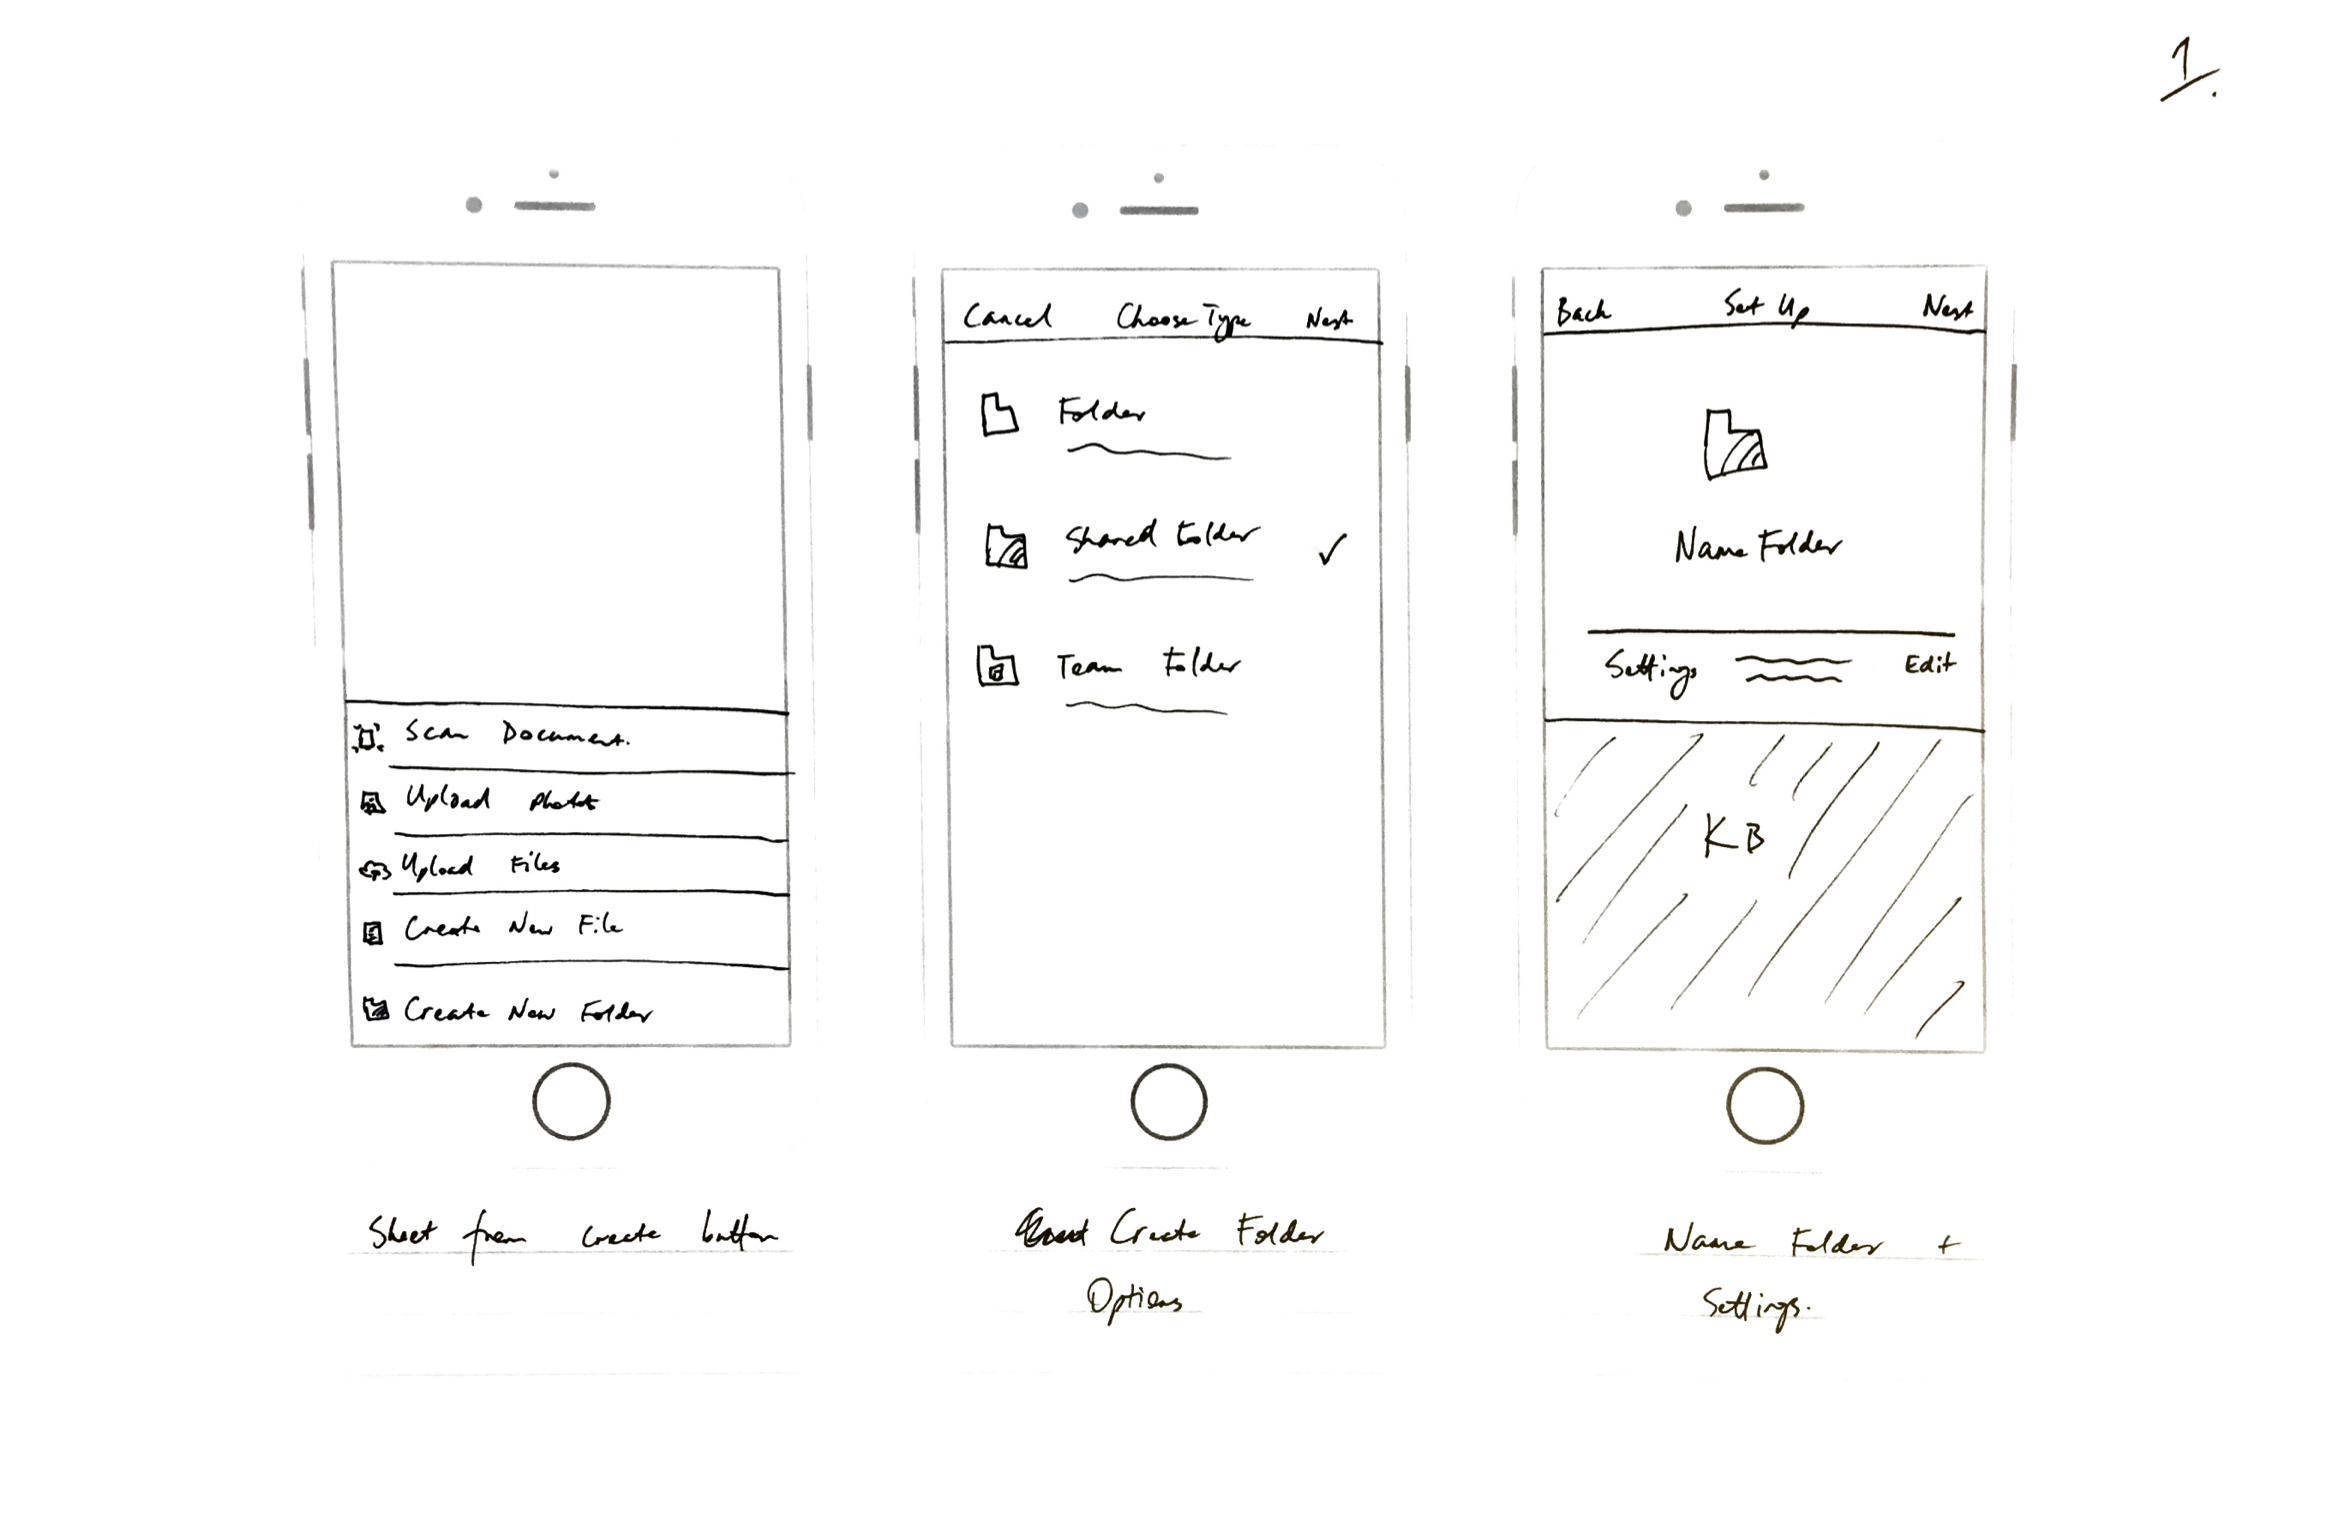 1.
Scan Document.
Upload Photos
Upload Files
Create New File
Create New Folder
Sheet from create button
Cancel Choose Type Next
Folder
Shared Folder ✓
Team Folder
Create Folder
Options
Back Set Up Next
Name Folder
Settings Edit
KB
Name Folder +
Settings.